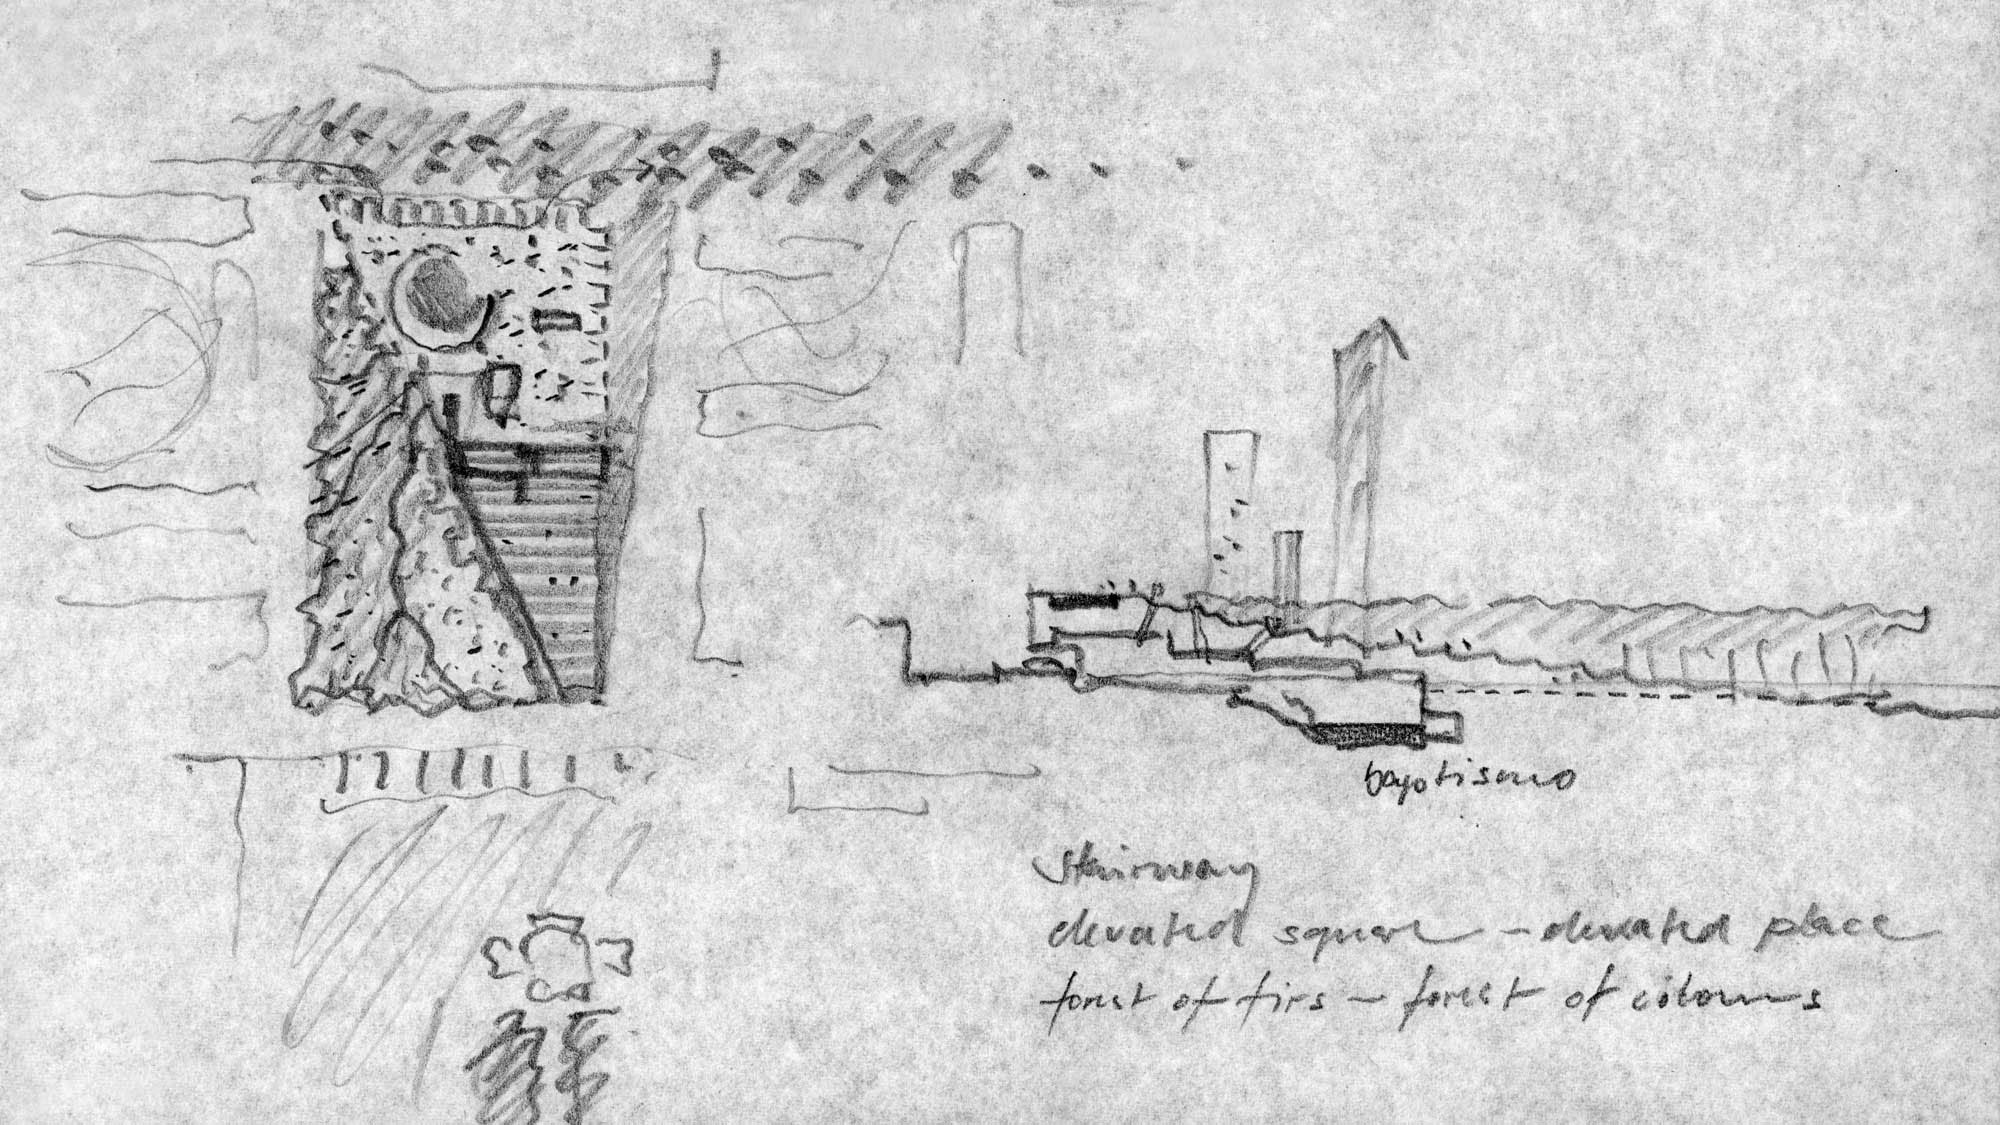 stairway
elevated square – elevated place
forest of firs – forest of